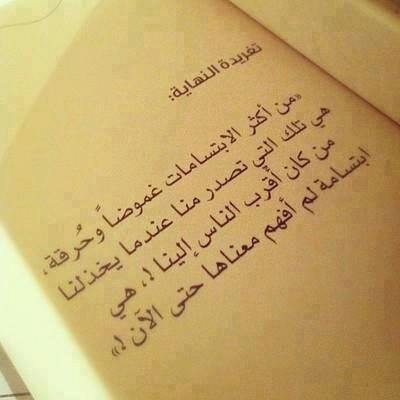 تغريدة النهاية:
«من أكثر الابتسامات غموضاً وحُرقة،
هي تلك التي تصدر منا عندما يخذلنا
من كان أقرب الناس إلينا !، هي
ابتسامة لم أفهم معناها حتى الآن !»